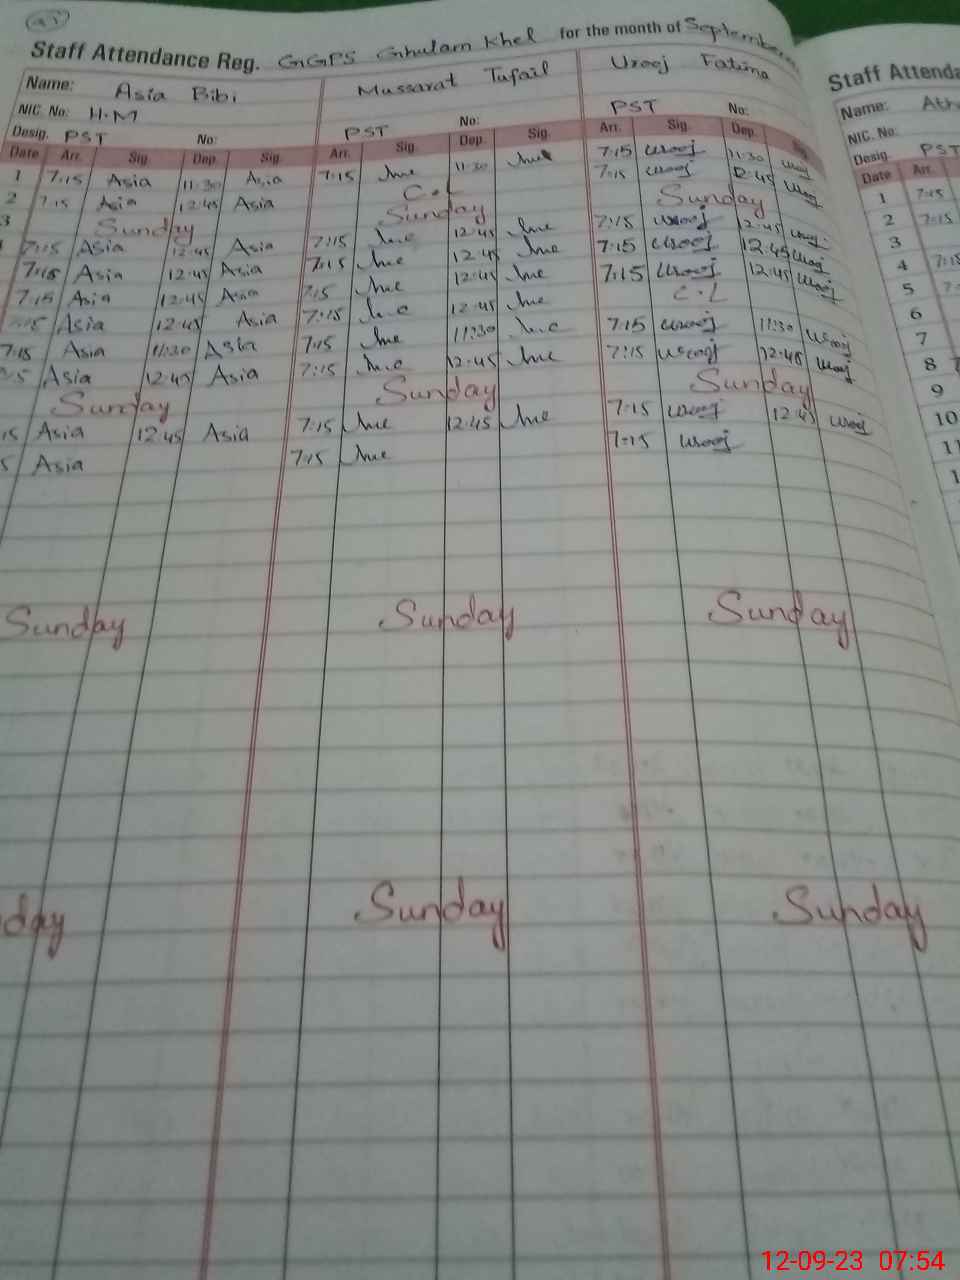 Staff Attendance Reg. GGPS Ghulam Khel for the month of September
Name: Asia Bibi Mussarat Tufail Urooj Fatima
NIC. No: H.M
Desig. PST No: PST No: PST No:
Date Arr. Sig. Dep. Sig. Arr. Sig. Dep. Sig. Arr. Sig. Dep.
1 7:15 Asia 11:30 Asia 7:15 11:30 7:15 urooj 11:30 urooj
2 7:15 Asia 12:45 Asia C.L 7:15 urooj 12:45 urooj
3 Sunday Sunday Sunday
7:15 Asia 12:45 Asia 7:15 12:45 7:15 urooj 12:45 urooj
7:15 Asia 12:45 Asia 7:15 12:45 7:15 urooj 12:45 urooj
7:15 Asia 12:45 Asia 7:15 12:45 7:15 urooj 12:45 urooj
Asia 12:45 Asia 7:15 12:45 C.L
7:15 Asia 11:30 Asia 7:15 11:30 7:15 urooj 11:30 urooj
5 Asia 12:45 Asia 7:15 12:45 7:15 urooj 12:45 urooj
Sunday Sunday Sunday
15 Asia 12:45 Asia 7:15 12:45 7:15 urooj 12:45 urooj
5 Asia 7:15 7:15 urooj
Sunday Sunday Sunday
day Sunday Sunday
Staff Attenda
Name: Ath
NIC. No:
Desig. PST
Date Arr.
1 7:15
2 7:15
3
4 7:15
5
6
7
8
9
10
12-09-23 07:54